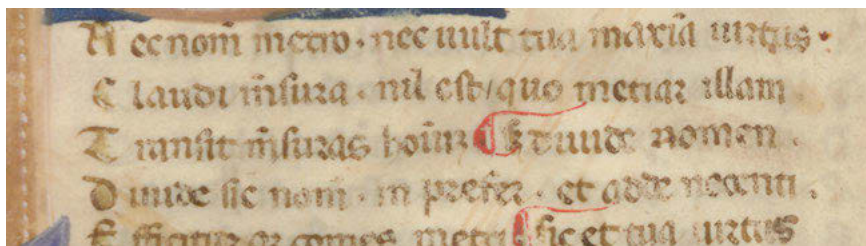 N ec nom̄ metro · nec uult tua maxīa uirtus ·
C laudi m̄sura · nil est quo metiar illam
T ransit m̄suras hoīum diuide nomen .
D iuide sic nom̄ · in prefer · et adde necenti .
E fficitur or comes metri sic et tua uirtus